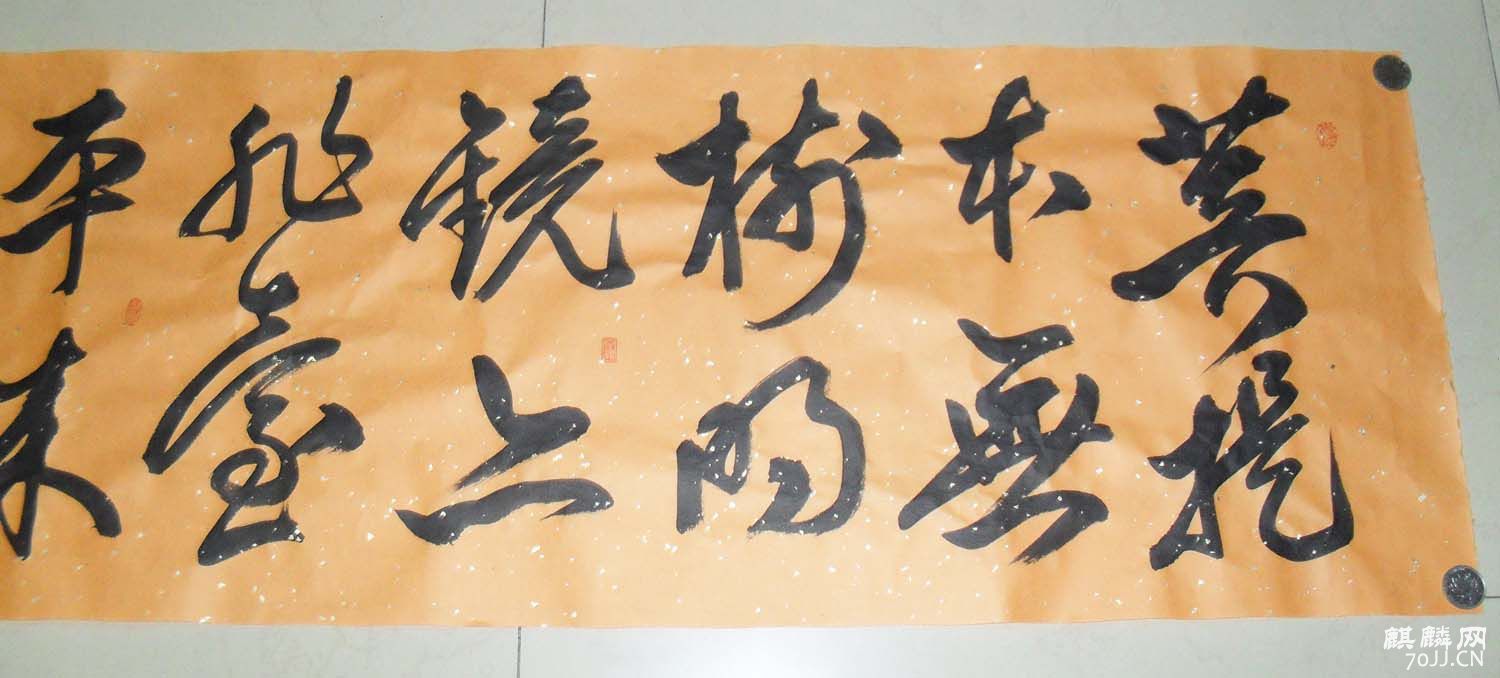 菩提
本無
樹明
鏡亦
非臺
本来
麒麟网
70JJ.CN